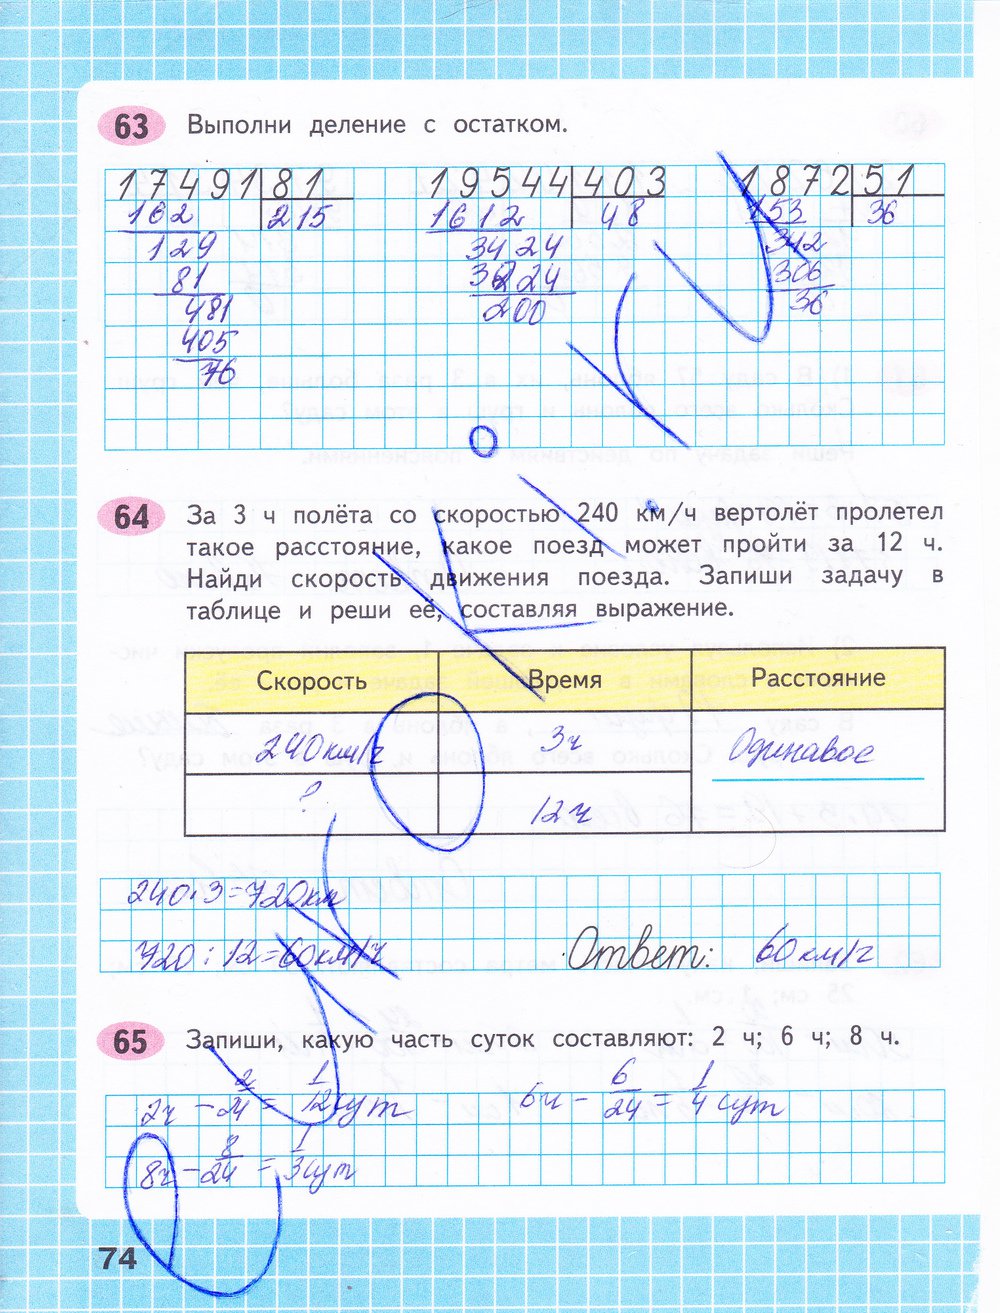 63 Выполни деление с остатком.
17491 81 19544 403 1872 51
162 215 1612 48 153 36
129 3424 342
81 3224 306
481 200 36
405
76
64 За 3 ч полёта со скоростью 240 км/ч вертолёт пролетел
такое расстояние, какое поезд может пройти за 12 ч.
Найди скорость движения поезда. Запиши задачу в
таблице и реши её, составляя выражение.
Скорость Время Расстояние
240км/ч 3ч Одинавое
? 12ч
240·3=720км
720:12=60км/ч Ответ: 60км/г
65 Запиши, какую часть суток составляют: 2 ч; 6 ч; 8 ч.
2ч – 2/24 = 1/12 сут 6ч – 6/24 = 1/4 сут
8ч – 8/24 = 1/3 сут
74